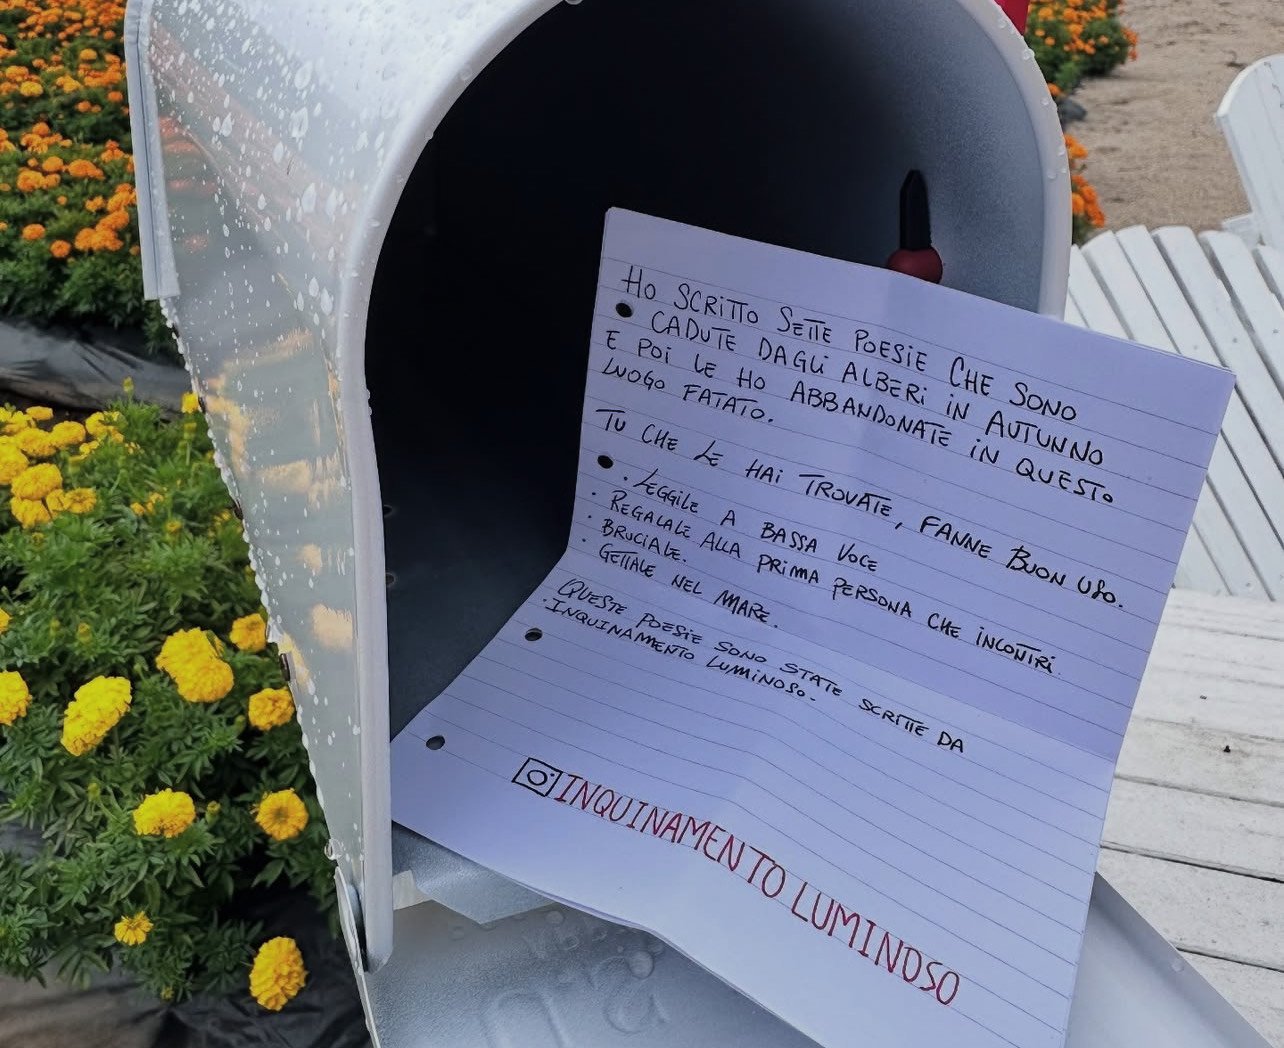 HO SCRITTO SETTE POESIE CHE SONO
CADUTE DAGLI ALBERI IN AUTUNNO
E POI LE HO ABBANDONATE IN QUESTO
LUOGO FATATO.
TU CHE LE HAI TROVATE, FANNE BUON USO.
· LEGGILE A BASSA VOCE
· REGALALE ALLA PRIMA PERSONA CHE INCONTRI
· BRUCIALE.
· GETTALE NEL MARE.
QUESTE POESIE SONO STATE SCRITTE DA
·INQUINAMENTO LUMINOSO.-
INQUINAMENTO LUMINOSO